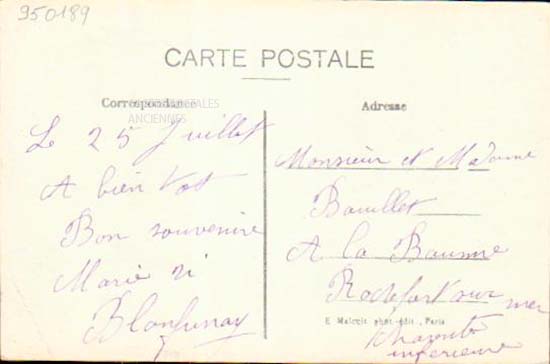 950189
CARTE POSTALE
Correspondance
CARTES POSTALES
ANCIENNES
Adresse
Le 25 Juillet
A bien tot
Bon souvenire
Marie
Monsieur et Madame
Bouillet
A la Baume
Rochefort sur mer
E Malcuit phot-édit, Paris
inferieure